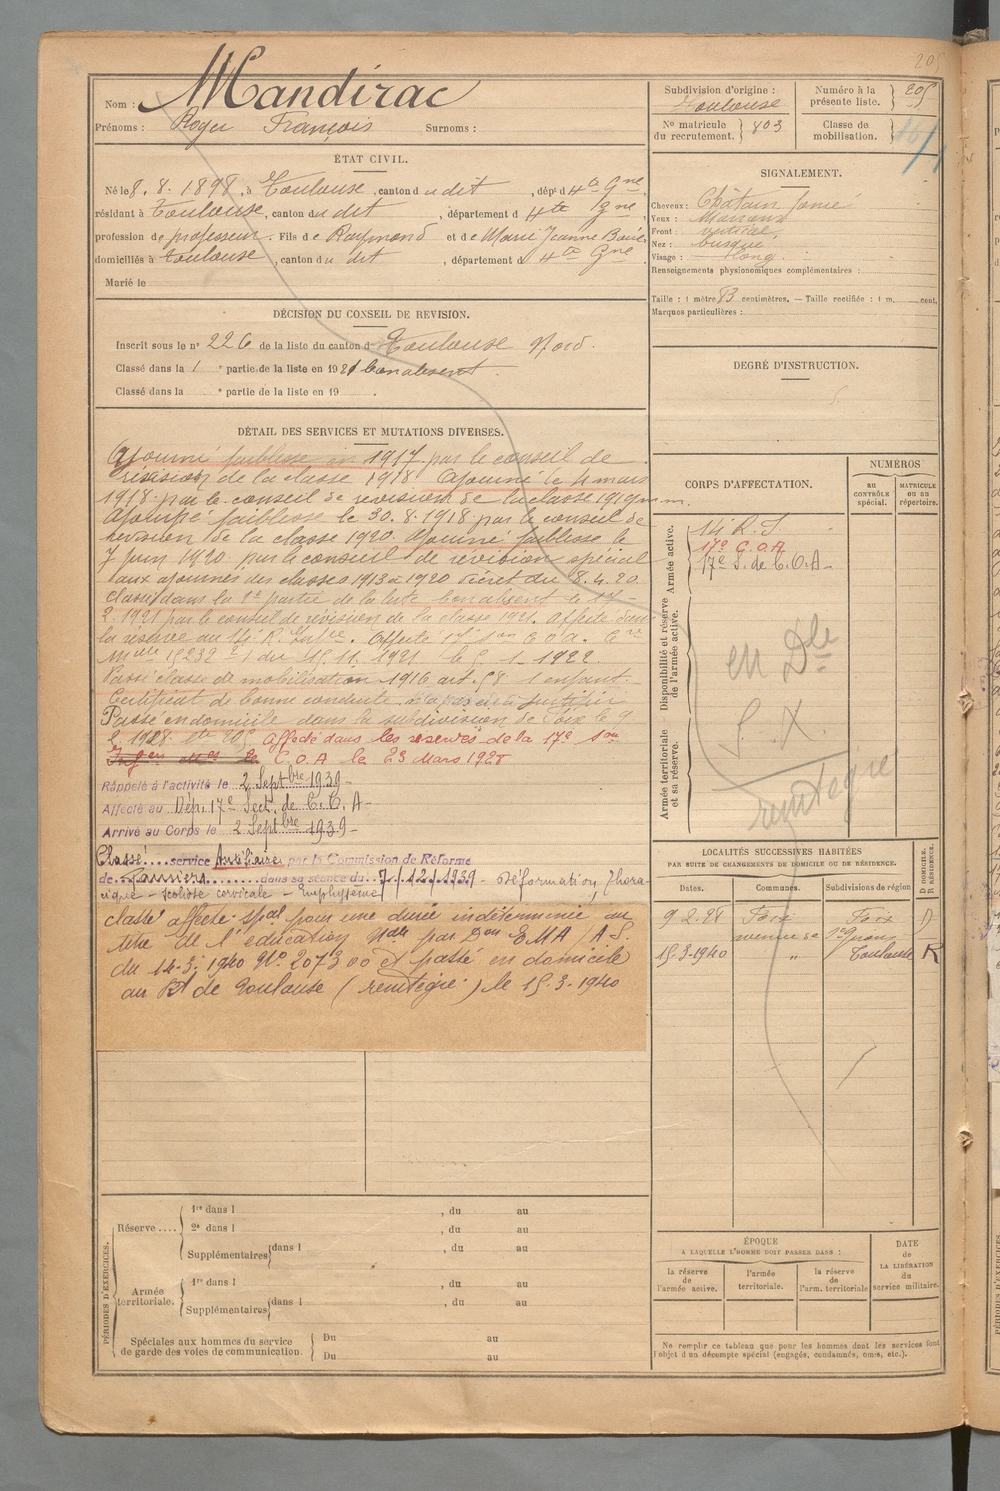 205
Nom : Mandirac
Prénoms : Roger François Surnoms :
Subdivision d'origine : Toulouse
Numéro à la présente liste. 205
No matricule du recrutement. 803
Classe de mobilisation. 16/
ÉTAT CIVIL.
Né le 8. 8. 1898, à Toulouse, canton du dit, dépt d Hte Gne,
résidant à Toulouse, canton du dit, département d Hte Gne,
profession de professeur. Fils de Raymond et de Marie Jeanne
domiciliés à Toulouse, canton du dit, département d Hte Gne.
Marié le
SIGNALEMENT.
Cheveux : Châtain foncé
Yeux : Marrons
Front : vertical
Nez : busqué
Visage : long
Renseignements physionomiques complémentaires :
Taille : 1 mètre 83 centimètres. — Taille rectifiée : 1 m. cent.
Marques particulières :
DÉCISION DU CONSEIL DE REVISION.
Inscrit sous le n° 226 de la liste du canton de Toulouse Nord.
Classé dans la 1e partie de la liste en 1921 bon absent.
Classé dans la e partie de la liste en 19 .
DEGRÉ D'INSTRUCTION.
5
DÉTAIL DES SERVICES ET MUTATIONS DIVERSES.
Ajourné faiblesse en 1917 par le conseil de
révision de la classe 1918. Ajourné le 4 mars
1918 par le conseil de revision de la classe 1919 m.m
Ajourné faiblesse le 30.8.1918 par le conseil de
revision de la classe 1920. Ajourné faiblesse le
7 juin 1920 par le conseil de revision spécial
aux ajournés des classes 1913 à 1920 décret du 8.4.20.
Classé dans la 1e partie de la liste bon absent le 17-
2.1921 par le conseil de révision de la classe 1921. Affecté dans
la réserve au 14e R. Infie. Affecté 17e son C O A. Cre
mlle 15232 du 15.11.1921 le 5.1.1922.
Passé classe de mobilisation 1916 art. 58 1 enfant.
Certificat de bonne conduite : à justifier
Passé en domicile dans la subdivision de Foix le 9
2.1928. Affecté dans les réserves de la 17e Son
C.O.A le 23 Mars 1928
Rappelé à l'activité le 2 Septbre 1939-
Affecté au Dép. 17e Sect. de C.O.A-
Arrivé au Corps le 2 Septbre 1939-
Classé service Auxiliaire par la Commission de Réforme
de dans sa séance du 7/12/1939 - déformation thora-
cique - scoliose cervicale - Emphysème
classé affecté spal pour une durée indéterminée au
titre de l'éducation Nale par Don EMA/A.S.
du 14-3-1940 No 2073 00 et passé en domicile
au Bt de Toulouse (réintégré) le 15.3.1940
CORPS D'AFFECTATION.
NUMÉROS
au CONTRÔLE spécial.
MATRICULE ou au répertoire.
Armée active.
14 R.I.
17e C.O.A
17e S. de C.O.A-
Disponibilité et réserve de l'armée active.
en Dle
S. X
Armée territoriale et sa réserve.
réintégré
LOCALITÉS SUCCESSIVES HABITÉES
PAR SUITE DE CHANGEMENTS DE DOMICILE OU DE RÉSIDENCE.
Dates. Communes. Subdivisions de région D DOMICILE. R RÉSIDENCE.
9 2.28 Foix Foix D
15.3-1940 " Toulouse R
PÉRIODES D'EXERCICES.
Réserve .... 1re dans l , du au
2e dans l , du au
Supplémentaires dans l , du au
Armée territoriale. 1re dans l , du au
Supplémentaires dans l , du au
Spéciales aux hommes du service de garde des voies de communication. Du au
Du au
ÉPOQUE
A LAQUELLE L'HOMME DOIT PASSER DANS :
la réserve de l'armée active.
l'armée territoriale.
la réserve de l'arm. territoriale
DATE de LA LIBÉRATION du service militaire.
Ne remplir ce tableau que pour les hommes dont les services font
l'objet d'un décompte spécial (engagés, condamnés, omis, etc.).